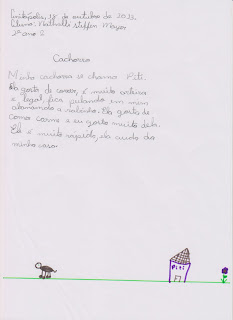 de outubro de 2022
Aluno: Nathally Steffen Mayer
2º ano
Cachorro
Minha cachorra se chama Piti.
Ela gosta de correr, é muito
e legal, fica pulando em mim
abanando o rabinho. Ela gosta de
comer carne e eu gosto muito dela.
Ela é muito rápida, ela cuida da
minha casa.
Piti